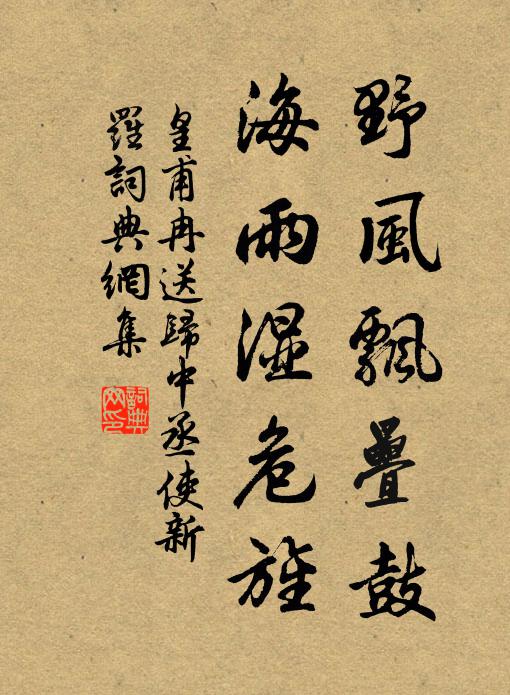 野風飄疊鼓
海雨濕危旌
皇甫冉送歸中丞使新
羅詞典網集
詞典
网印